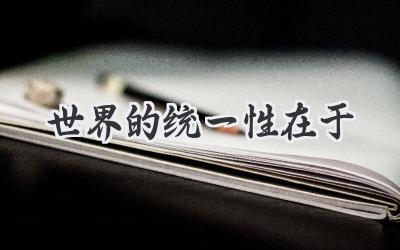 世界的统一性在于